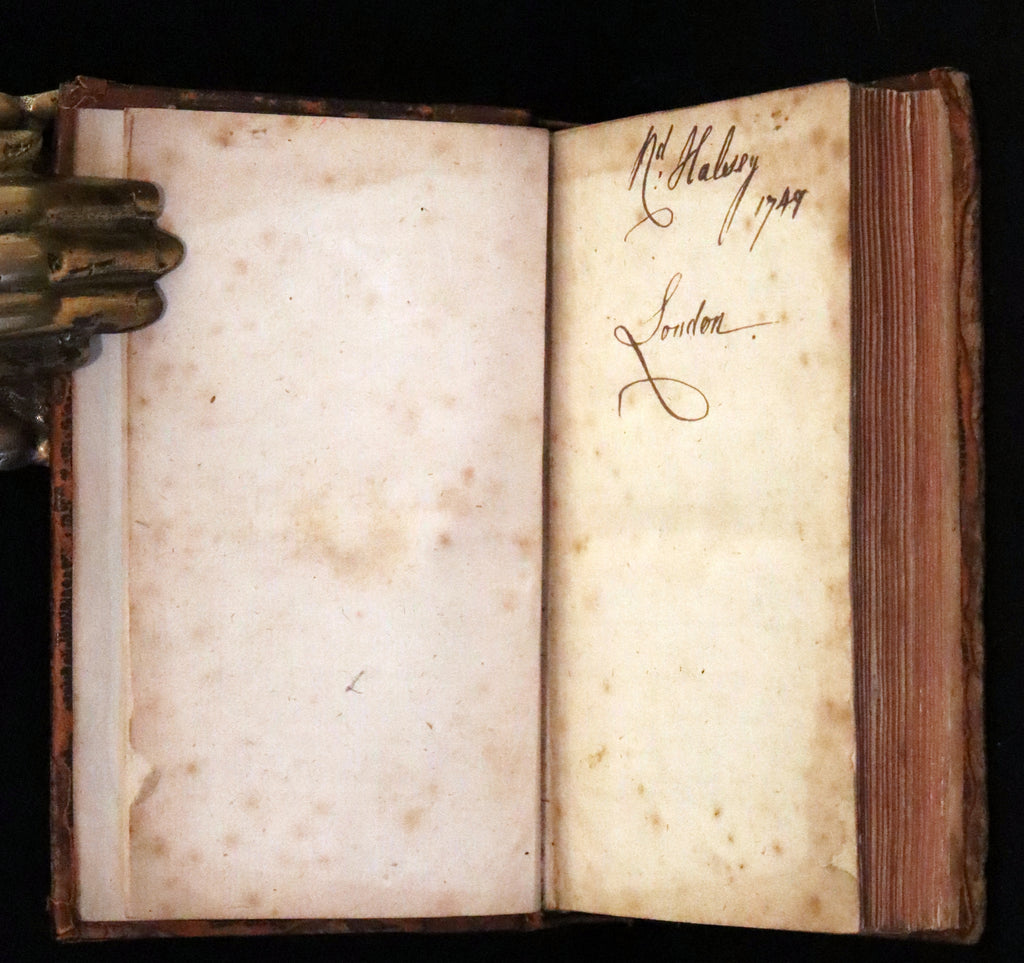 Nd. Halsey
1749
London.